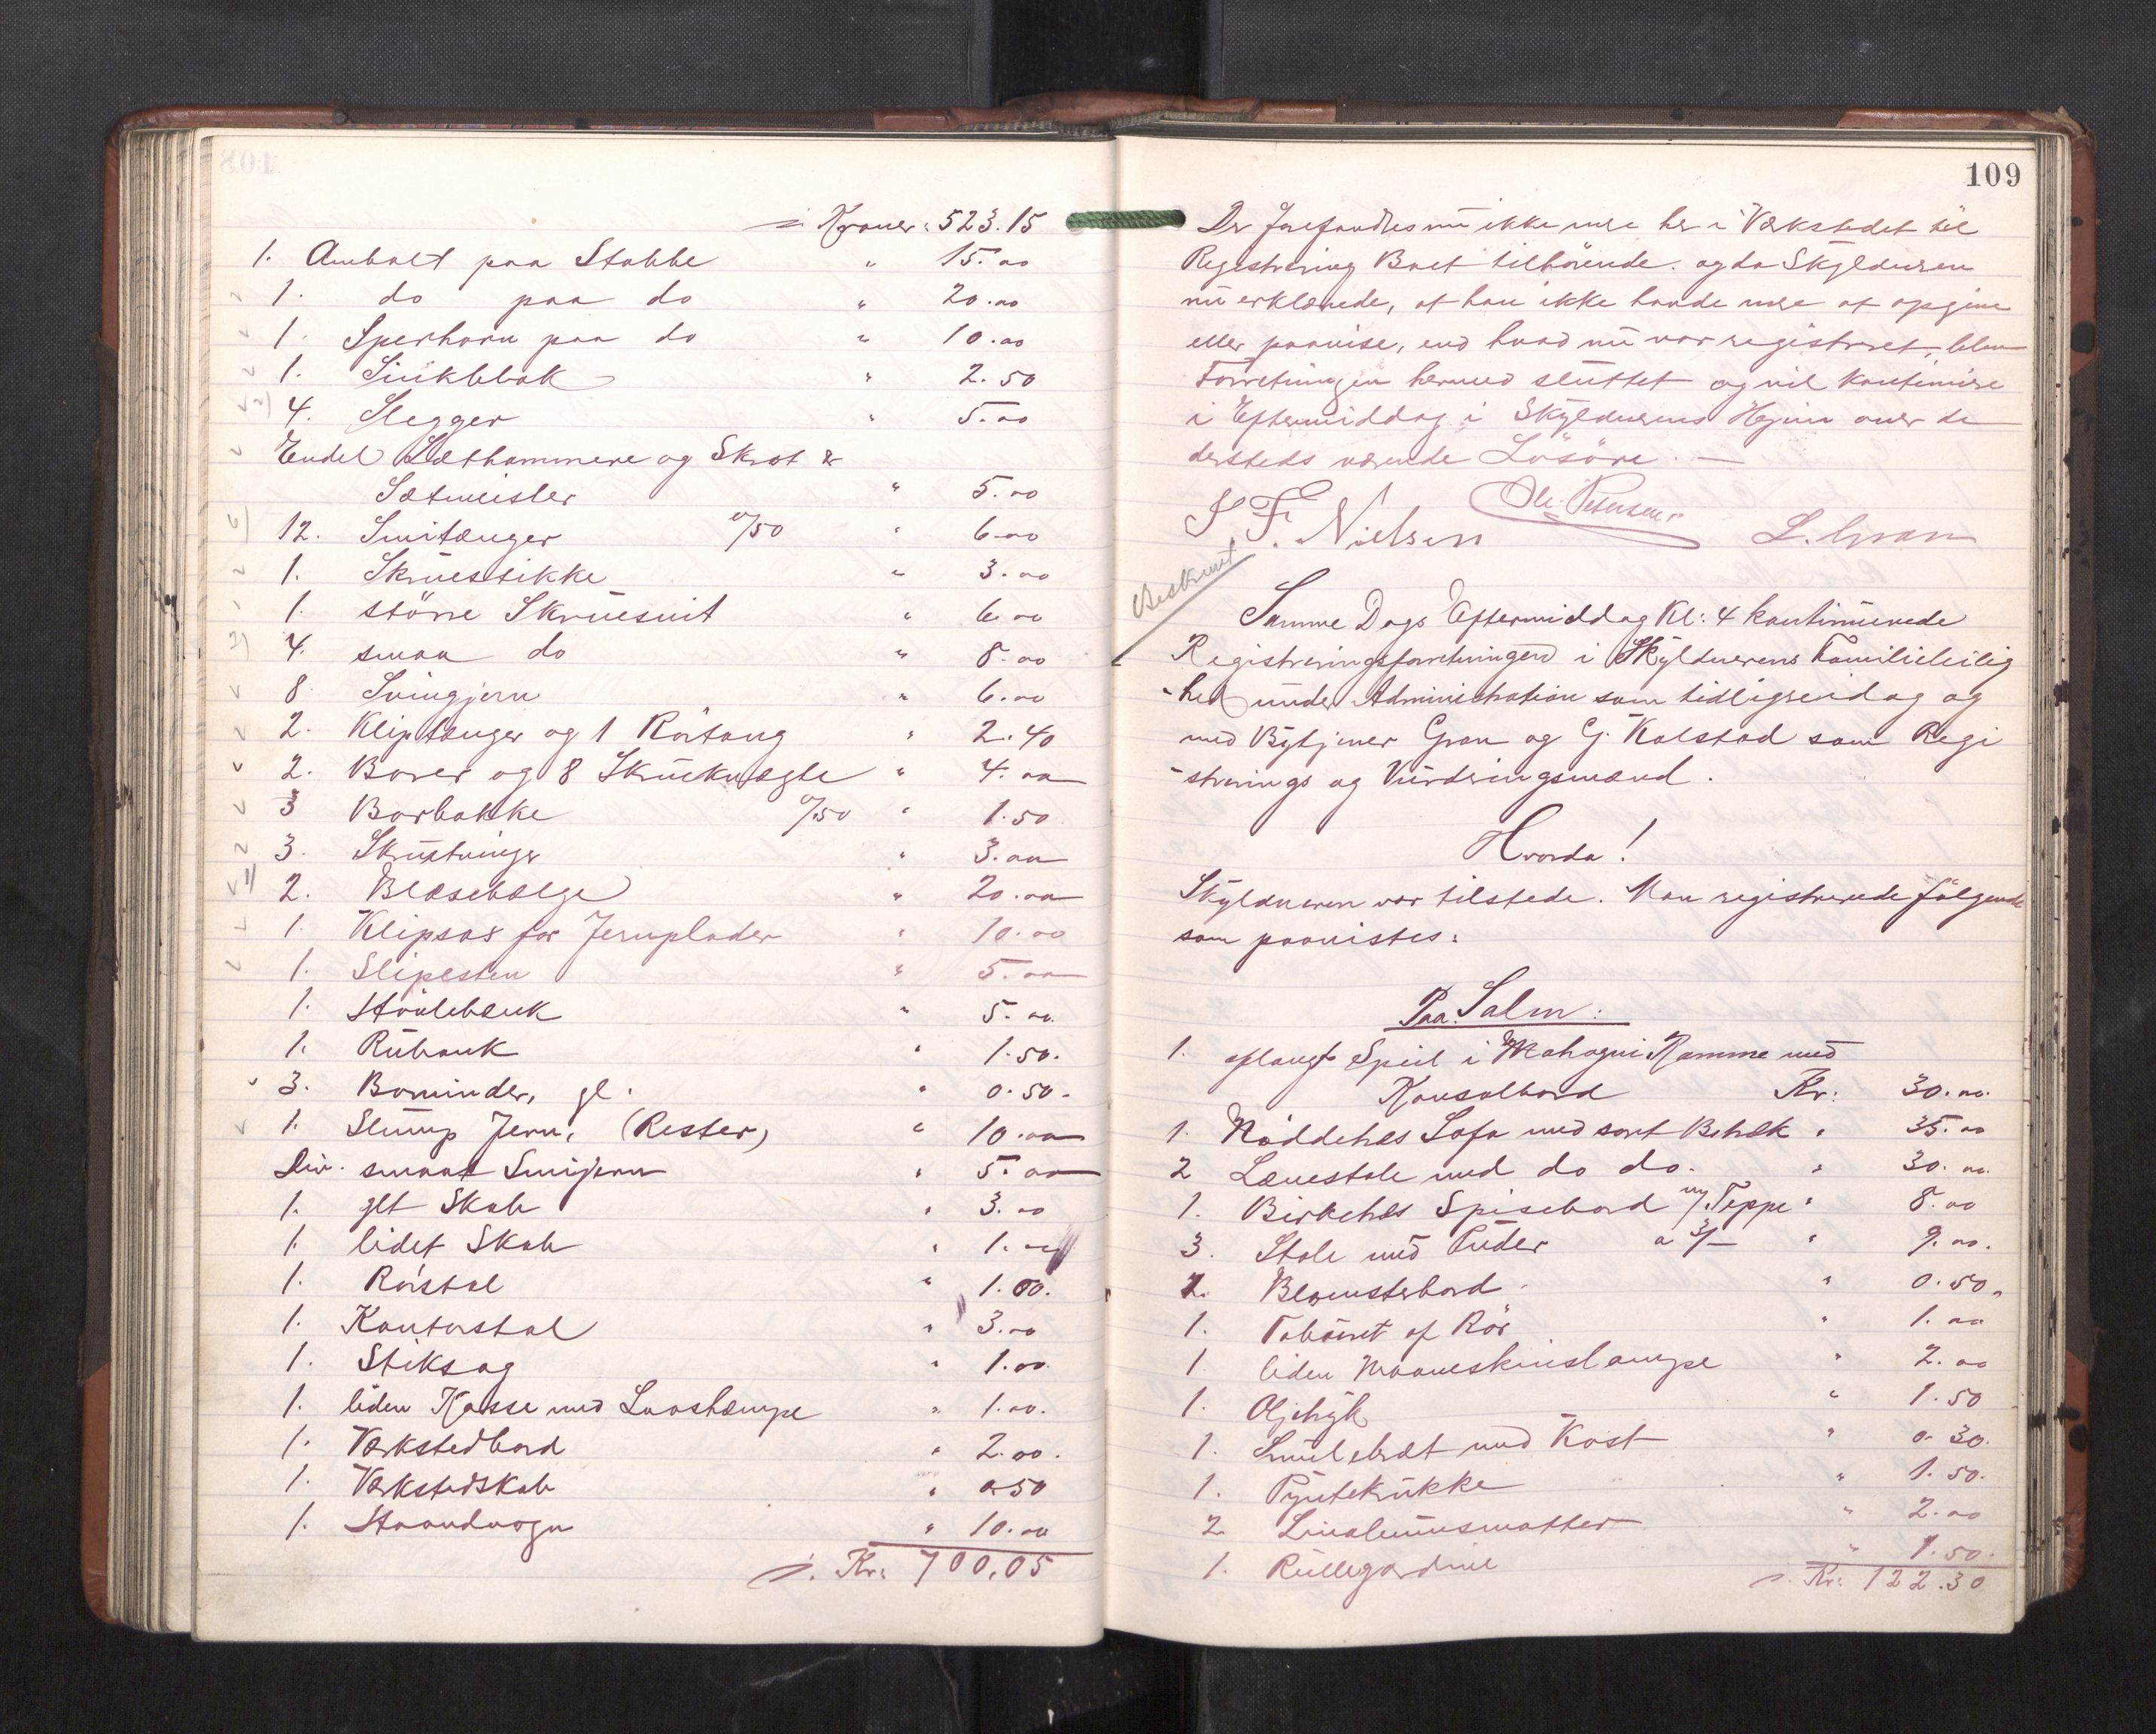 ÷ Kroner: 523.15
1. Ambolt paa Stabbe " 15.00
1. do paa do " 20.00
1. Sperhorn paa do " 10.00
1. Sinkblok " 2.50
4. Slegger " 5.00
Endel Sæthammere og Skrot &
Sætmeisler " 5.00
12. Smitænger a/50 " 6.00
1. Skruestikke " 3.00
1. större Skruesnit " 6.00
4. smaa do " 8.00
8. Svingjern " 6.00
2. Kliptænger og 1 Rörtang " 2.40
2. Borer og 8 Skruknægte " 4.00
3 Borbakke a/50 " 1.50
3. Skrutvinger " 3.00
2. Blæsebælge " 20.00
1. Klipsax for Jernplader " 10.00
1. Slipesten " 5.00
1. Hövlebænk " 5.00
1. Rubank " 1.50.
3. Borvinder, gl. " 0.50.
1. Slump Jern, (Rester) " 10.00
Div. smaat Smijern " 5.00
1. glt Skab " 3.00
1. lidet Skab " 1.00
1. Rörstol " 1.00.
1. Kontorstol " 3.00
1. Stiksag " 1.00
1. liden Kasse med Lavslampe " 1.00.
1. Værkstedbord " 2.00.
1. Værkstedskab " 0.50
1. Haandvogn " 10.00
÷. Kr: 700,05
109
Der forefandtes nu ikke mere her i Værkstedet til
Registrering Boet tilhörende. og da Skyldneren
nu erklærede, at han ikke havde mere at opgive
eller paavise, end hvad nu var registreret, blev
Forretningen hermed sluttet og vil kontinuere
i Eftermiddag i Skyldnerens Hjem over de
dersteds værende Lösöre. —
J F. Nielsen Ole Petersen L. Gran
Beskrevet
Samme Dags Eftermiddag Kl: 4 kontinuerede
Registreringsforretningen i Skyldnerens Familieleilig
-hed under Administration som tidligere idag og
med Bytjener Gran og G. Kolstad som Regi
-strerings og Vurderingsmænd.
Hvorda!
Skyldneren var tilstede. Man registrerede fölgende
som paavistes:
Paa Salen:
1. aflangt Speil i Mahogni Ramme med
Konsolbord Kr: 30.00.
1. Nöddetræs Sofa med sort Betræk " 35.00
2 Lænestole med do do. " 30.00.
1. Birketræs Spisebord m/ Teppe " 8.00
3. Stole med Puder a 3/- " 9.00.
2. Blomsterbord " 0.50.
1. Taburet af Rör " 1.00
1. liden Maaneskinslampe " 2.00
1. Oljetryk " 1.50
1. Smulebræt med Kost " 0.30.
1. Pyntekrukke " 1.50.
2 Linoleumsmatter " 2.00
1. Rullegardine " 1.50.
÷. Kr: 122.30